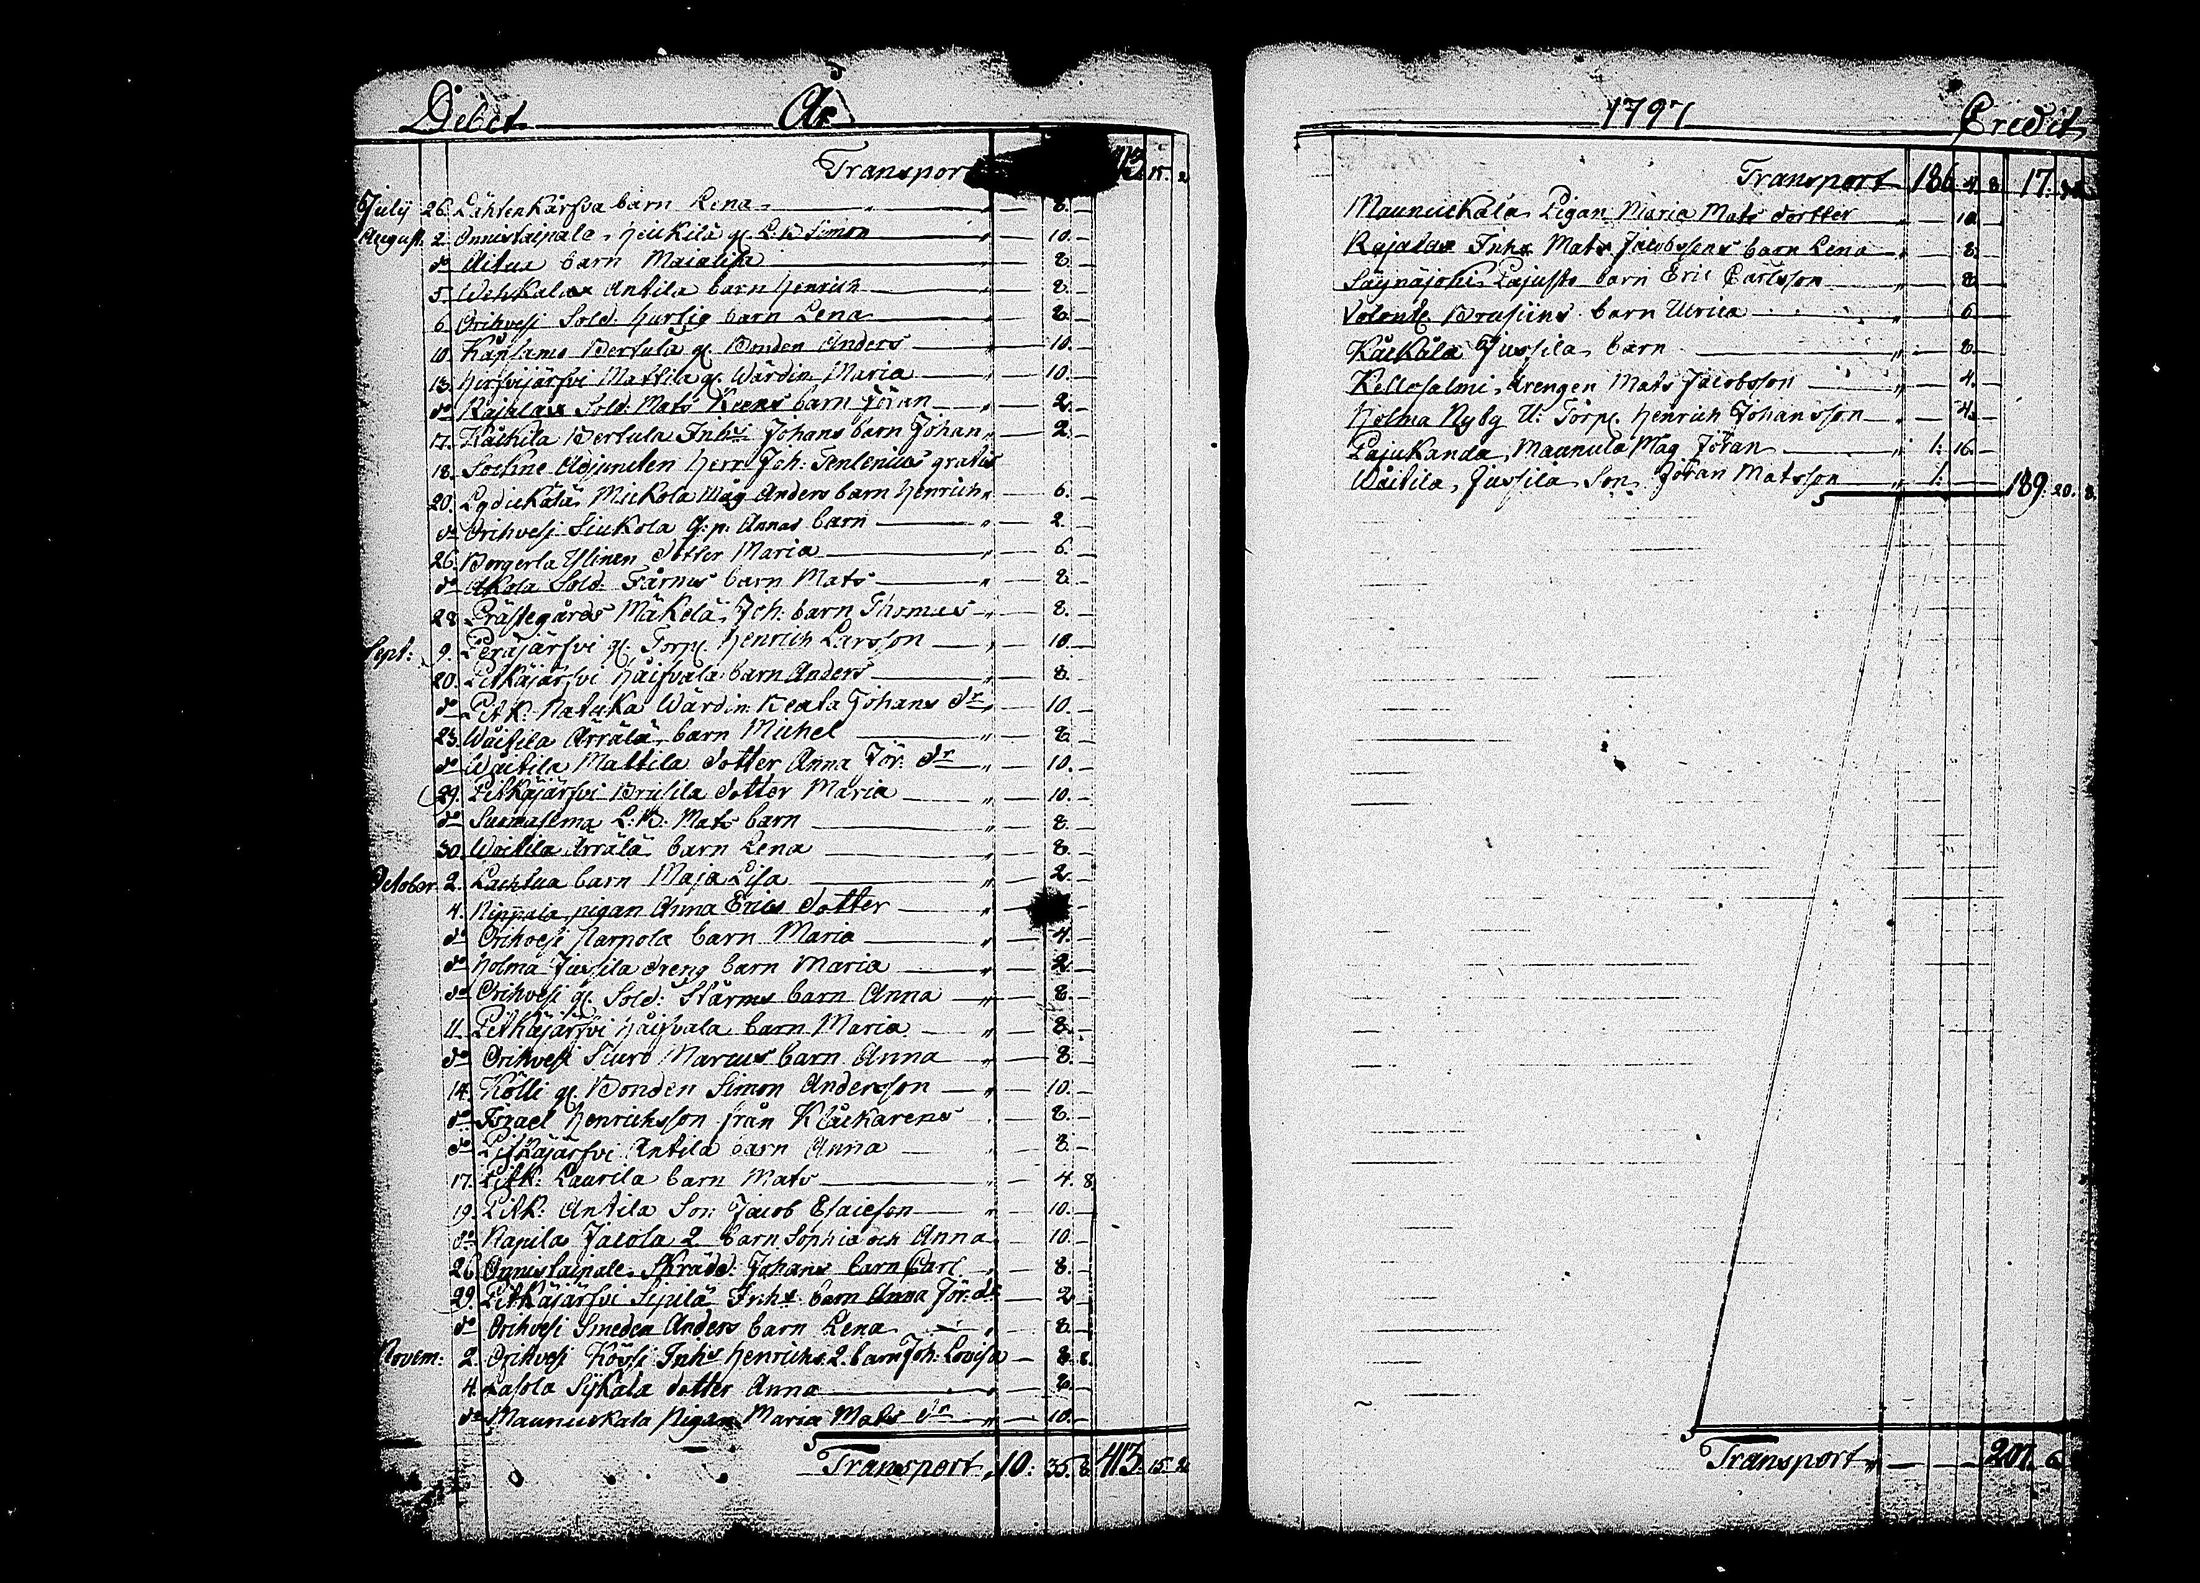 Debet År
Transport 413 15. 2
July 26. Lähtenkärfva barn Lena " — 8. —
August. 2. Onnistaipala, Heikilä gl. L: B Simon " — 10. —
do Aitua barn Maialisa " — 8. —
5. Wehkalax Antila barn Henrich " — 8. —
6. Orihvesi Sold. Hurtig barn Lena " — 8. —
10. Kånsamo Bertula gl. Bonden Anders " — 10. —
13. Hirsvijärfvi Mattila gl. Wärdin. Maria " — 10. —
do Rajalax Sold. Mats Keens barn Jöran " — 2. —
17. Kåckila Bertula Inhs Johans barn Johan " — 2. —
18. Sockne Adjuncten Herr Joh: Tenlenius gratis
20. Lydickälä Mickola Måg Anders barn Henrich " — 6. —
do Orihvesi Siukola Q: p: Annas barn " — 2. —
26. Borgerla Ylinen dotter Maria " — 6. —
do Akola Sold. Färnus barn Mats " — 8. —
28 Prästegårds Mäkelä, Joh: barn Thomas " 8. —
Sept: 9. Peräjärfvi gl. Torp. Henrich Larsson " 10. —
20. Pitkäjärfvi Håifvala barn Anders " 8. —
do Pitk: Natuka Wärdin. Beata Johans dr " 10. —
23. Wåitila Arrälä barn Michel " 8. —
do Wåitila Mattila dotter Anna Jör: dr " 10. —
29. Pitkäjärfvi Brusila dotter Maria " 10. —
do Suomasema L: B: Mats barn " 8. —
30. Wåitila Arrälä barn Lena 8. —
October 2. Lachtua barn Maja Lisa " — 2. —
4. Nippala pigan Anna Erics dotter " — —
do Orihvesi Harpola barn Maria " — 4. —
do Holma Jussila dreng barn Maria " — 2 —
do Orihvesi gl. Sold: Stärms barn Anna " — 8. —
11. Pitkäjärfvi Håifvala barn Maria " — 8. —
do Orihvesi Siuro Marcus barn Anna " — 8. —
14. Kölli gl. Bonden Simon Andersson " — 10. —
do Israel Henricksson från Klåckarens — 8. —
do Pitkäjärfvi Antila barn Anna 8 —
17. Pitk: Laurila barn Mats " — 4. 8.
19. Pitk: Antila Son Jacob Esaieson " — 10. —
do Napila Jacola 2 barn Sophia och Anna — 10. —
26 Onnistaipale, Skräd: Johans barn Carl " — 8. —
29. Pitkäjärfvi Sipilä Inhs barn Anna Jör: dr — 2 —
do Orihvesi Smeden Anders barn Lena " 8. —
Novem: 2. Orihvesi Kössi Inhs Henrichs 2. barn Joh: Lovisa — 8. 8.
4. Lasola Sÿkälä dotter Anna " — 8. —
do Maunuskala Pigan Maria Mats dr " — 10. —
Transport 10: 35. 8 413: 15. 2
1797 Credit
Transport 186 4. 8 17.
Maunuckala Pigan Maria Mats dortter " — 10. —
Rajalax Inhs Mats Jacobssons barn Lena " — 8. —
Säynäjoki Pajusto barn Eric Carlsson " — 8. —
Volonte. Brusiins barn Ulrica " — 6 —
Kåckåla Jussila barn " — 8. —
Kellosalmi, drengen Mats Jacobsson " — 4. —
Holma Nyby U: Torp. Henrich Johansson " — 4. —
Pajukanda, Maunula Mag Jöran " 1: 16. —
Wåitila, Jussila Son Jöran Matsson " 1: — 189. 20. 8.
Transport " — — — 207. 6